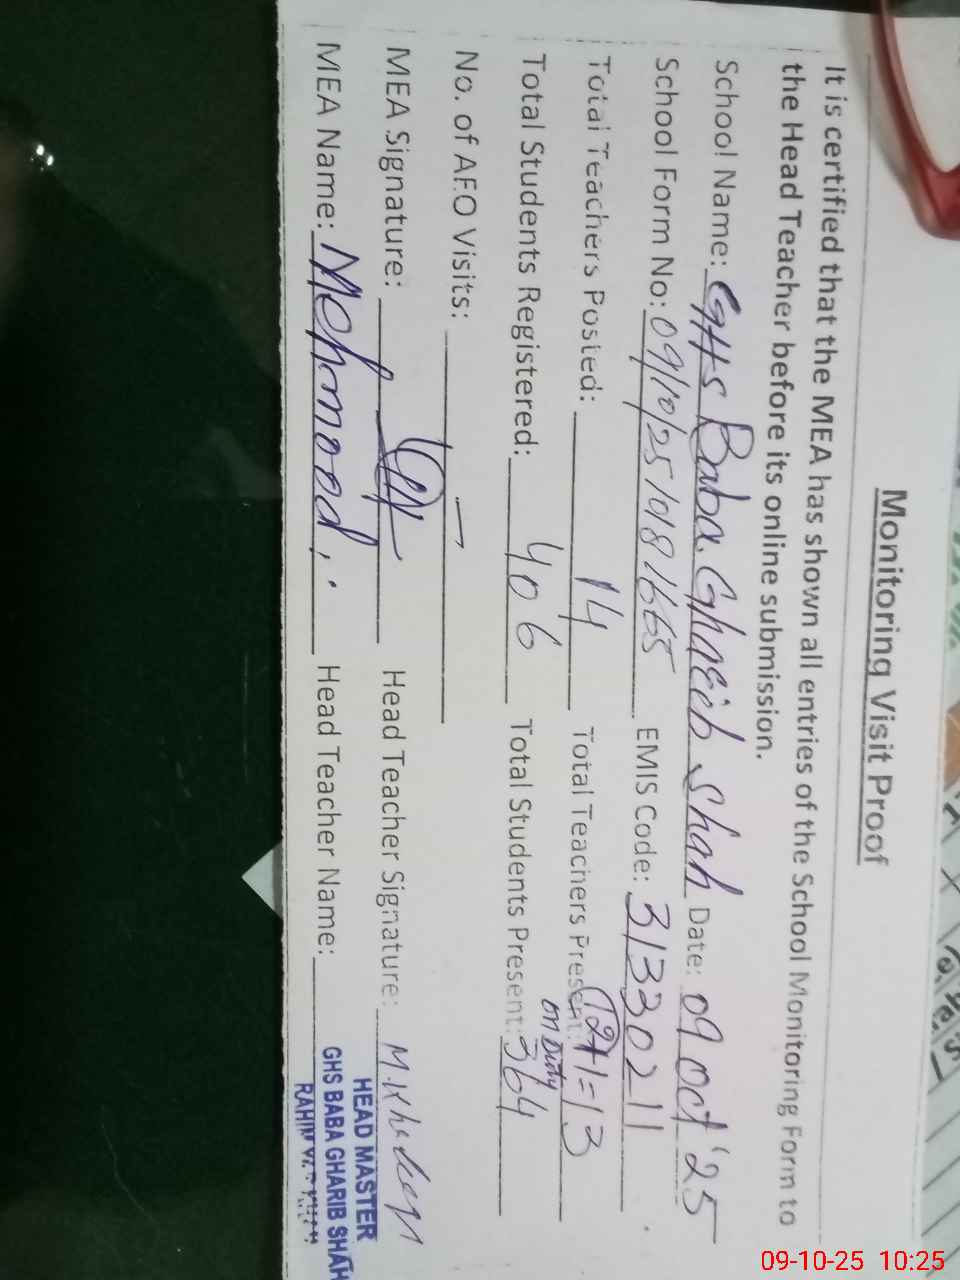 Monitoring Visit Proof
It is certified that the MEA has shown all entries of the School Monitoring Form to
the Head Teacher before its online submission.
School Name: GHS Baba Gharib Shah Date: 09 Oct '25
School Form No: 09/10/25/018/665 EMIS Code: 31330211
Total Teachers Posted: 14 Total Teachers Present: 12+1=13
on Duty
Total Students Registered: 406 Total Students Present: 364
No. of AEO Visits: —
MEA Signature: Head Teacher Signature:
MEA Name: Mehmood Head Teacher Name:
HEAD MASTER
GHS BABA GHARIB SHAH
RAHIM YAR KHAN
09-10-25 10:25